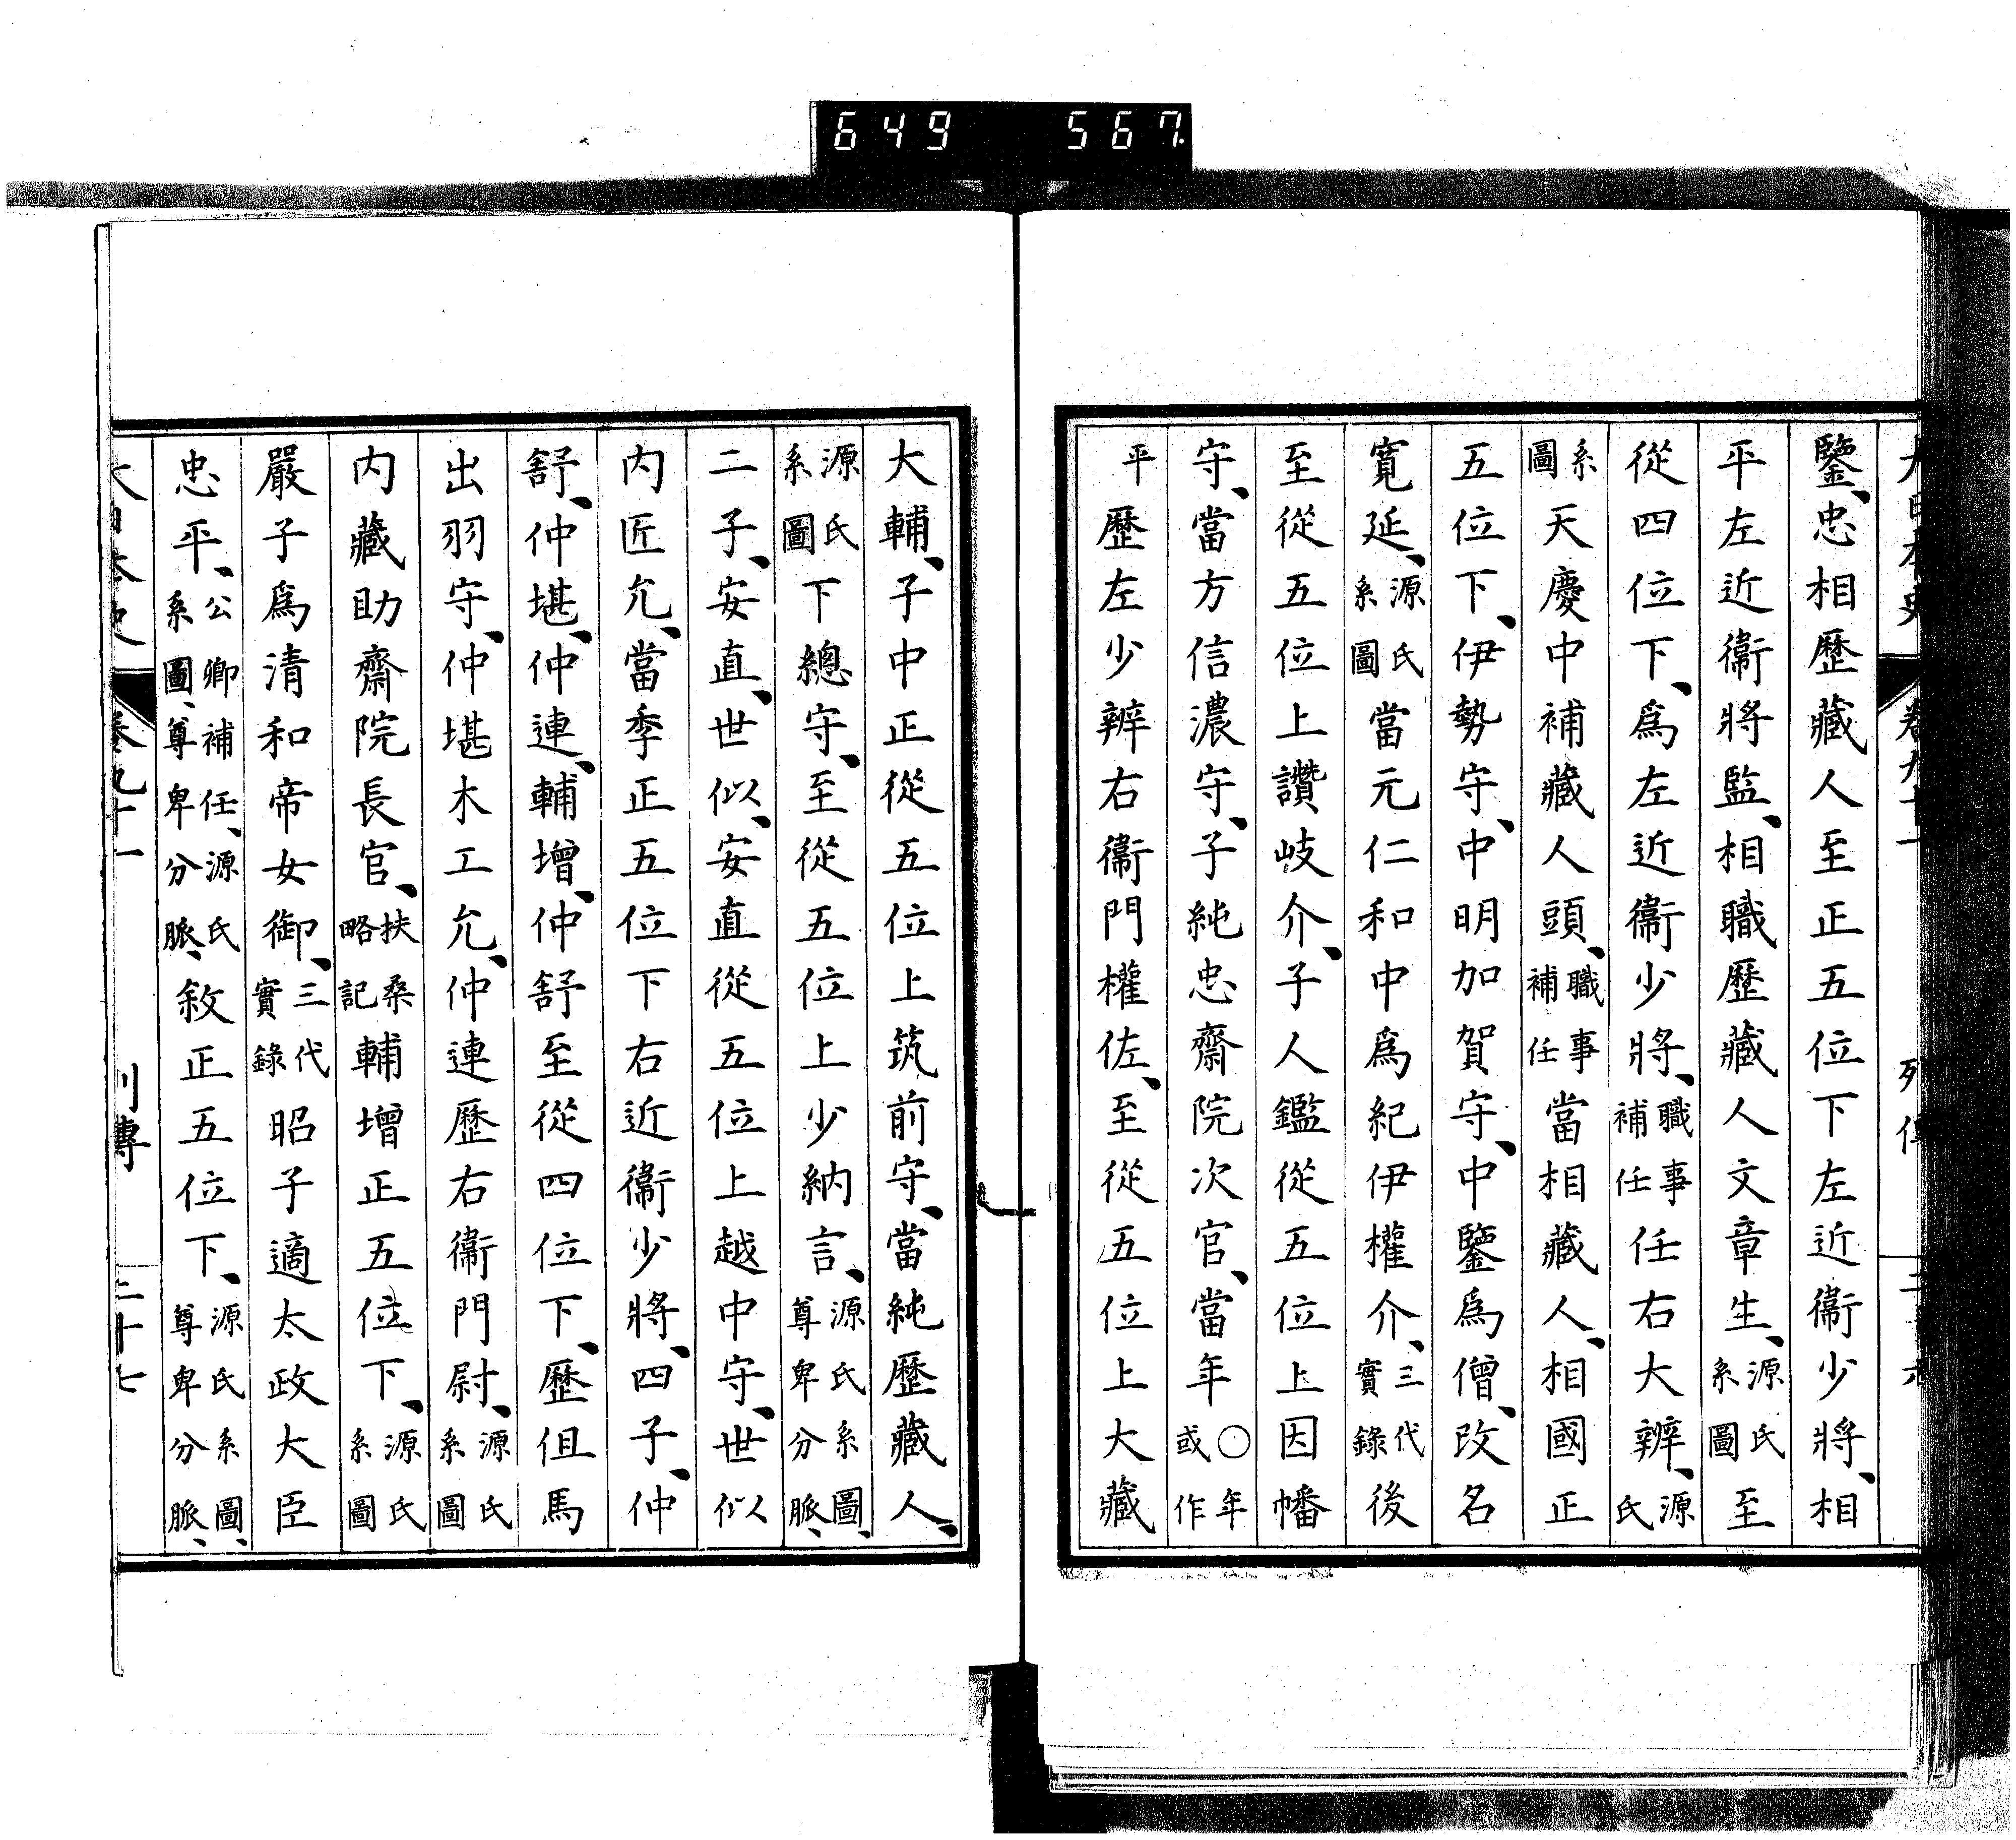 649 567
大日本史 卷九十一 列傳
鑒、忠相歷藏人至正五位下左近衞少將、相
平左近衞將監、相職歷藏人文章生、源氏系圖至
從四位下、爲左近衞少將、職事補任任右大辨、源氏
系圖天慶中補藏人頭、職事補任當相藏人、相國正
五位下、伊勢守、中明加賀守、中鑒爲僧、改名
寬延、源氏系圖當元仁和中爲紀伊權介、三代實錄後
至從五位上讚岐介、子人鑑從五位上因幡
守、當方信濃守、子純忠齋院次官、當年〇年或作
平歷左少辨右衞門權佐、至從五位上大藏
大輔、子中正從五位上筑前守、當純歷藏人、
源氏系圖下總守、至從五位上少納言、源氏系圖、尊卑分脈、
二子、安直、世似、安直從五位上越中守、世似
內匠允、當季正五位下右近衞少將、四子、仲
舒、仲堪、仲連、輔增、仲舒至從四位下、歷伹馬
出羽守、仲堪木工允、仲連歷右衞門尉、源氏系圖
內藏助齋院長官、扶桑略記輔增正五位下、源氏系圖
嚴子爲清和帝女御、三代實錄昭子適太政大臣
忠平、公卿補任、源氏系圖、尊卑分脈、敘正五位下、源氏系圖、尊卑分脈、
大日本史 卷九十一 列傳 二十七